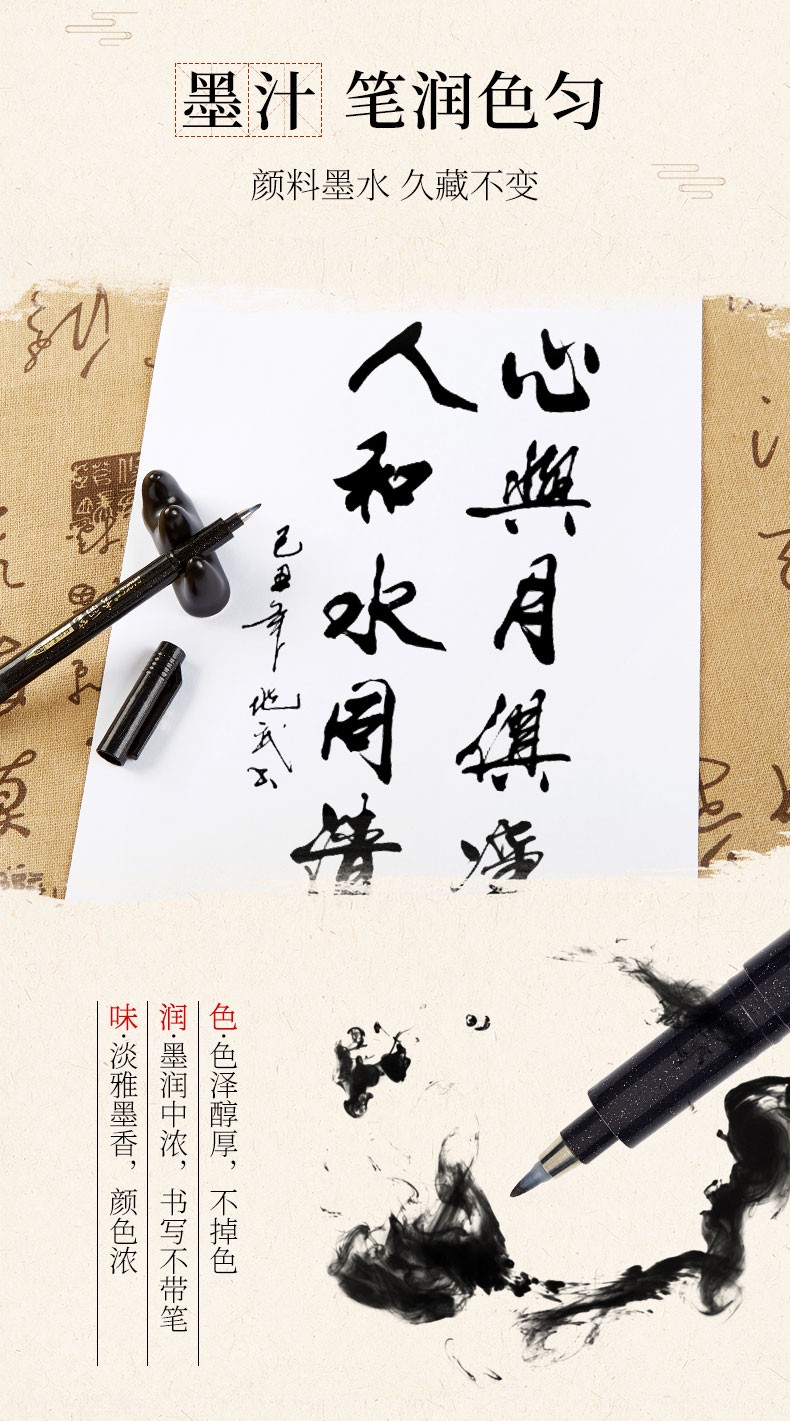 墨汁 笔润色匀
颜料墨水 久藏不变
心與月俱
人和水同情
己丑年
色·色泽醇厚，不掉色
润·墨润中浓，书写不带笔
味·淡雅墨香，颜色浓